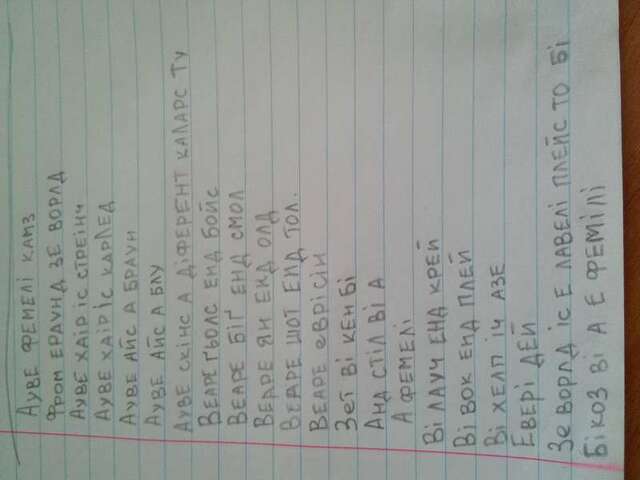 Ауве фемелі камз
Фром ераунд зе ворлд
Ауве хаір іс стреінч
Ауве хаір іс карлед
Ауве айс а браун
Ауве айс а блу
Ауве скінс а діферент каларс ту
Веаре гьолс енд бойс
Веаре біг енд смол
Веаре ян енд олд
Веаре шот енд тол.
Веаре еврісін
Зет ві кен бі
Анд стіл ві а
А фемелі
Ві лауч енд крей
Ві вок енд плей
Ві хелп іч азе
Евері дей
Зе ворлд іс е лавелі плейс то бі
Бікоз ві а е фемілі